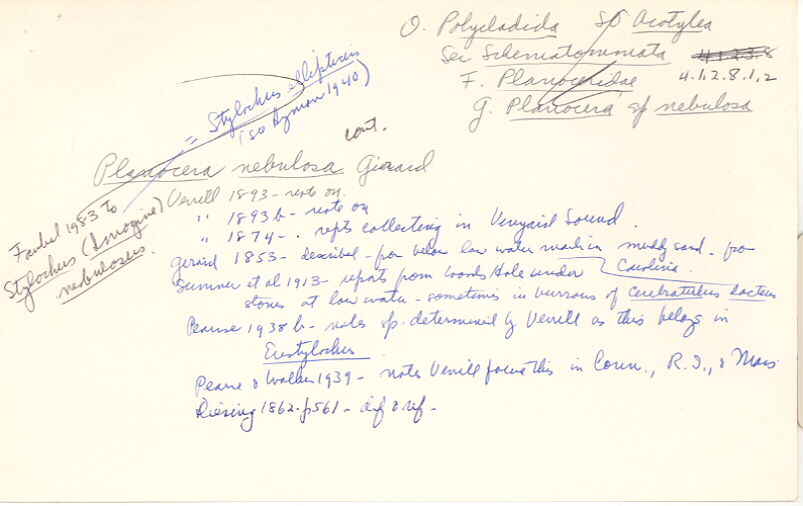 O. Polycladida SO Acotylea
Sec Schematommata 4.1.2.3.8
F. Planoceridae 4.1.2.8.1.2
G. Planocera sp nebulosa
= Stylochus ellipticus
(see Hyman 1940)
cont.
Planocera nebulosa Girard
Faubel 1983 to
Stylochus (Imogine)
nebulosus.
Verrill 1893 - note on.
" 1893b - note on
" 1874 - . repts collecting in Vineyard Sound.
Girard 1853 - described - from below low water mark in muddy sand - from
Carolina.
Sumner et al 1913 - reports from Woods Hole under
stones at low water - sometimes in burrows of Cerebratulus lacteus
Pearse 1938b - notes sp. determined by Verrill as this belongs in
Eustylochus
Pearse & Walker 1939 - notes Verrill found this in Conn., R.I., & Mass
Diesing 1862 - p561 - def & ref -